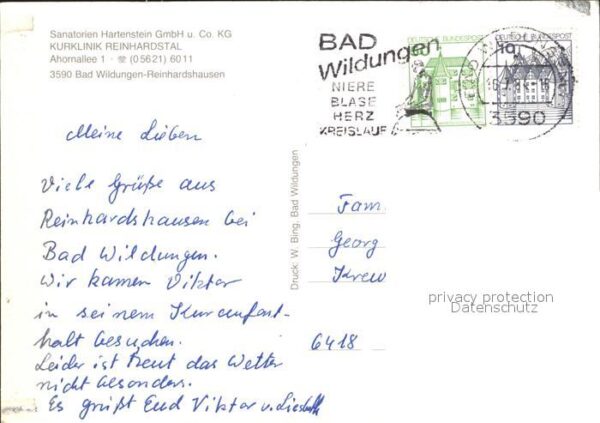 Sanatorien Hartenstein GmbH u. Co. KG
KURKLINIK REINHARDSTAL
Ahornallee 1 · ☏ (05621) 6011
3590 Bad Wildungen-Reinhardshausen
BAD
Wildungen
NIERE
BLASE
HERZ
KREISLAUF
DEUTSCHE BUNDESPOST
DEUTSCHE BUNDESPOST
3590
Meine Lieben
Viele Grüße aus
Reinhardshausen bei
Bad Wildungen.
Wir kamen Viktor
in seinem Kuraufent-
halt besuchen.
Leider ist heut das Wetter
nicht besonders.
Es grüßt Euch Viktor u. Liesbeth
Druck: W. Bing, Bad Wildungen
Fam.
Georg
Krew
6418
privacy protection
Datenschutz